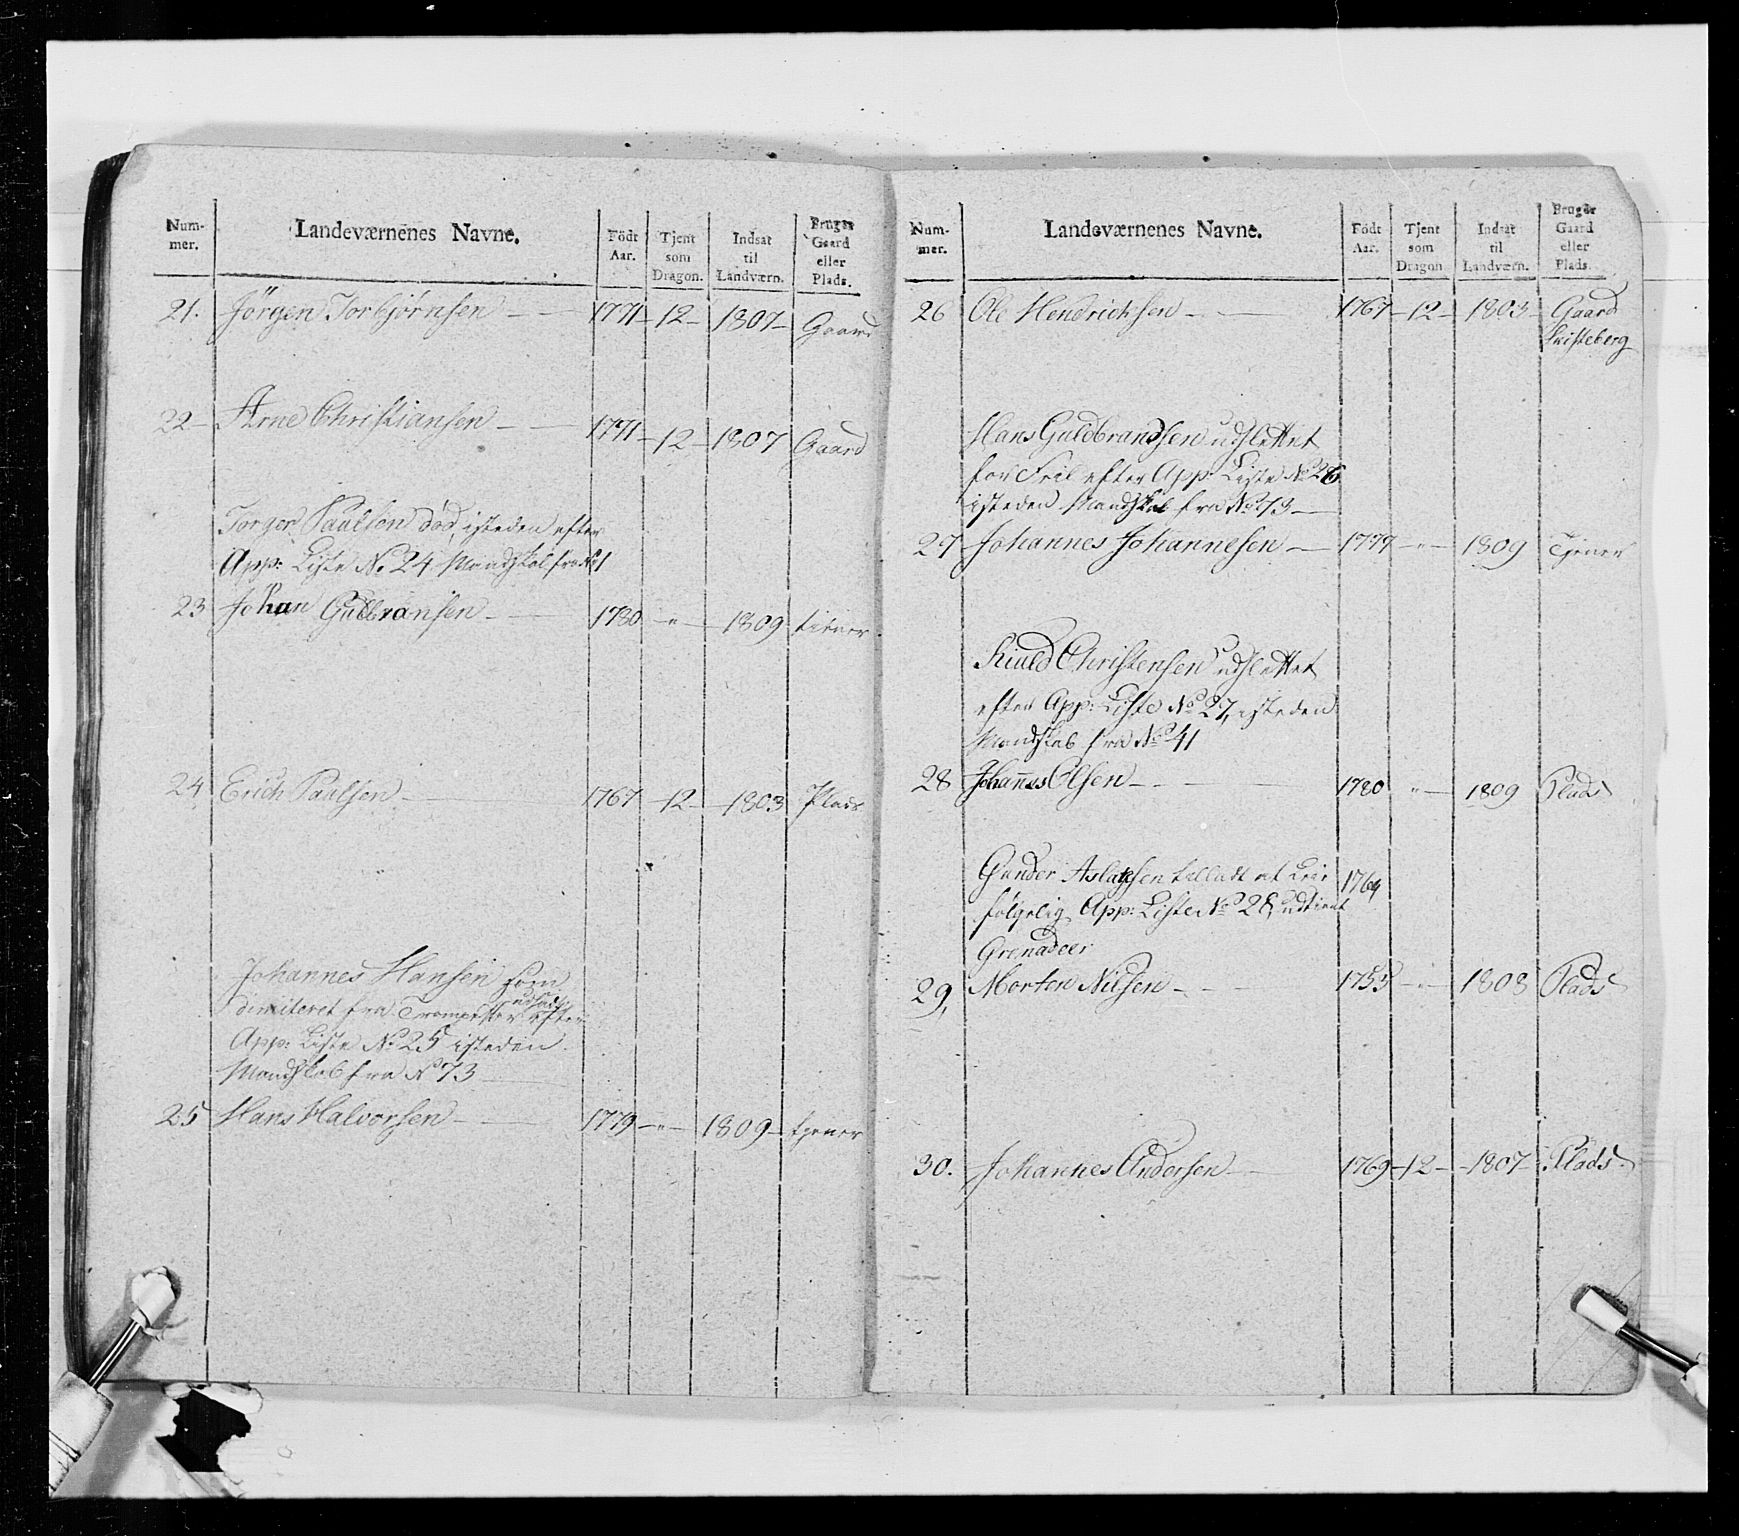 Num-
mer.
Landeværnenes Navne.
Födt
Aar.
Tjent
som
Dragon.
Indsat
til
Landværn.
Bruger
Gaard
eller
Plads.
21. Jörgen Torbjörnsen 1771 12 1807 Gaard
22 Arne Christiansen 1771 12 1807 Gaard
Torger Paulsen död, isteden efter
App: Liste No 24 Mandskab fra No 1
23 Johan Gulbransen 1780 " 1809 tiener
24 Erich Paulsen 1767 12 1803 Plads
Johannes Hansen som
dimiteret fra Trompetter udsat efter
App: Liste No 25 isteden
Mandskab fra No 73
25 Hans Halvorsen 1779 " 1809 tjener
Num-
mer.
Landeværnenes Navne.
Födt
Aar.
Tjent
som
Dragon
Indsat
til
Landværn.
Bruger
Gaard
eller
Plads.
26 Ole Hendrichsen 1767 12 1803 Gaard
Hans Guldbrandsen udslettet
for Feil efter App: Liste No 26
isteden Mandskab fra No 73
27 Johannes Johannesen 1777 " 1809 Tjener
Christensen udslettet
efter App: Liste No 27, isteden
Mandskab fra No 41
28 Johannes Olsen 1780 " 1809 Plads
Gunder Aslagsen 1764
følgelig App: Liste No 28 udtient
Grenadeer
29, Morten Nilsen 1755 " 1808 Plads
30. Johannes Andersen 1769 12 1807 Plads